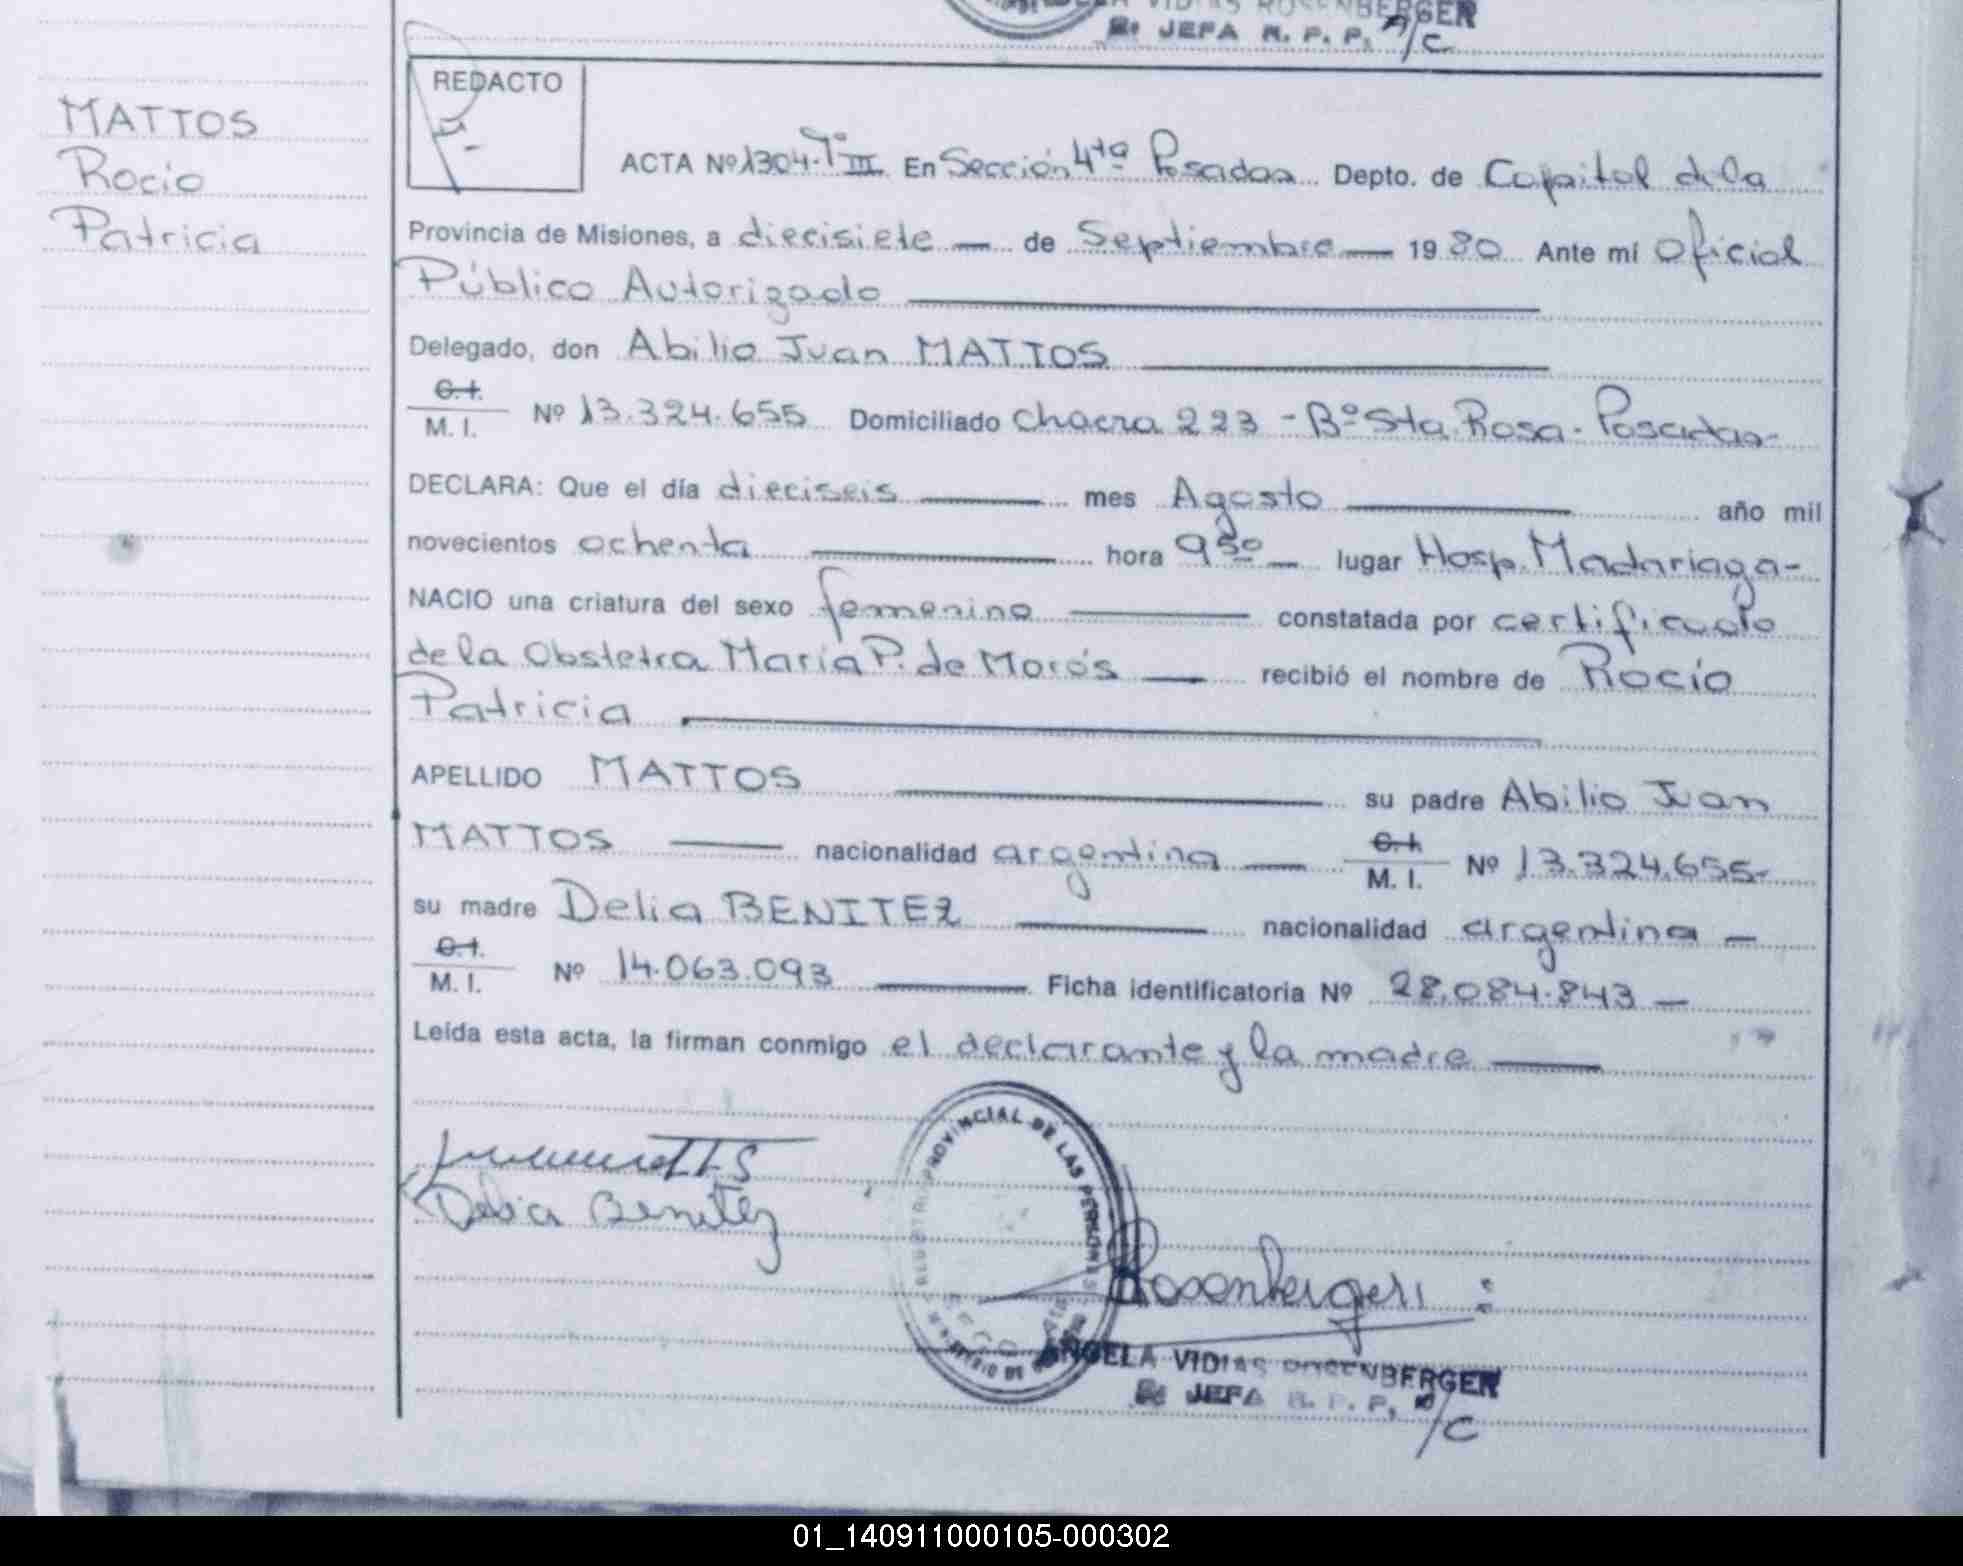 VIDIAS ROSENBERGER
JEFA R. P. P. A/C
MATTOS
Rocío
Patricia
REDACTO
ACTA Nº 1304-Tº III En Sección 4ta Posadas Depto. de Capital de la
Provincia de Misiones, a diecisiete — de Septiembre — 1980 Ante mí Oficial
Público Autorizado
Delegado, don Abilio Juan MATTOS
C. I.
M. I. Nº 13.324.655 Domiciliado Chacra 223 - Bº Sta. Rosa - Posadas-
DECLARA: Que el día dieciseis mes Agosto año mil
novecientos ochenta hora 9 30 — lugar Hosp. Madariaga-
NACIO una criatura del sexo femenino constatada por certificado
de la Obstetra María P. de Morós — recibió el nombre de Rocío
Patricia
APELLIDO MATTOS su padre Abilio Juan
MATTOS — nacionalidad argentina — C. I. M. I. Nº 13.324.655-
su madre Delia BENITEZ nacionalidad argentina —
C. I.
M. I. Nº 14.063.093 Ficha identificatoria Nº 28.084.843 —
Leída esta acta, la firman conmigo el declarante y la madre
Delia Benitez
PROVINCIAL DE LAS PERSONAS
Rosenberger
ANGELA VIDIAS ROSENBERGER
JEFA R. P. P. A/C
01_140911000105-000302